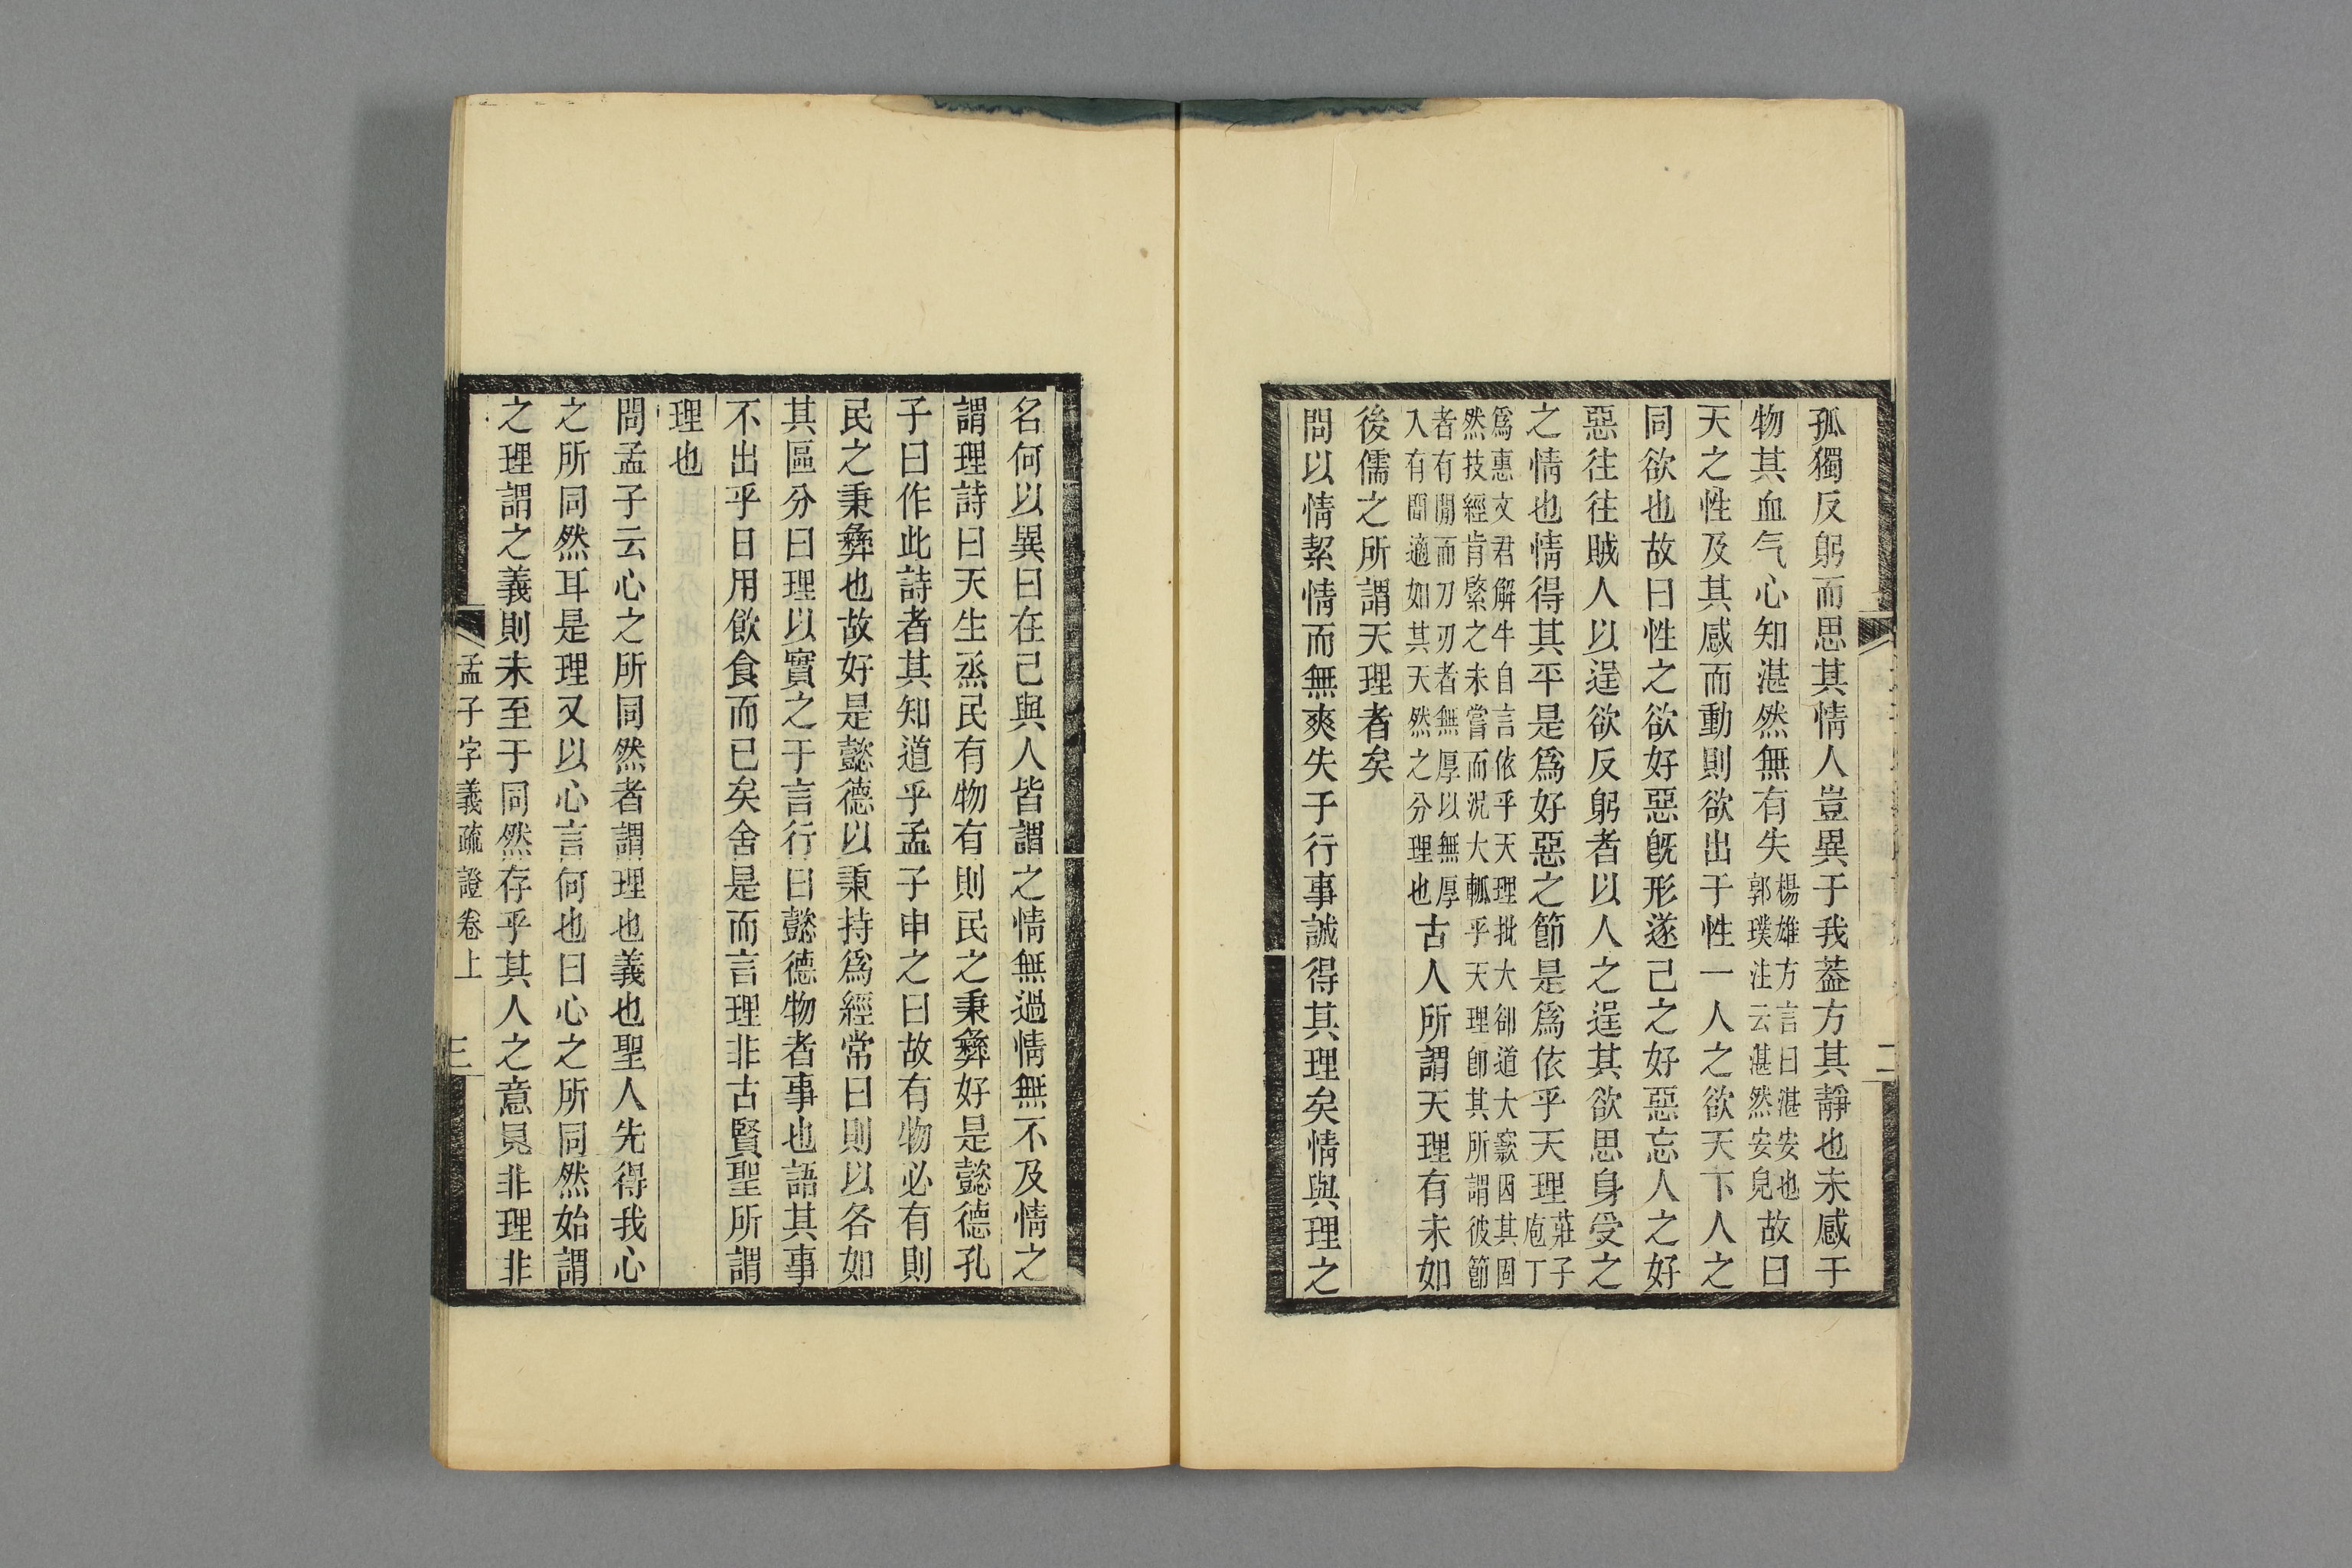 孤獨反躬而思其情人豈異于我葢方其靜也未感于
物其血气心知湛然無有失楊雄方言曰湛安也郭璞注云湛然安皃故曰
天之性及其感而動則欲出于性一人之欲天下人之
同欲也故曰性之欲好惡旣形遂己之好惡忘人之好
惡往往賊人以逞欲反躬者以人之逞其欲思身受之
之情也情得其平是爲好惡之節是爲依乎天理莊子庖丁
爲惠文君解牛自言依乎天理批大郤道大窾因其固然技經肯綮之未嘗而況大軱乎天理卽其所謂彼節
者有閒而刀刃者無厚以無厚入有閒適如其天然之分理也古人所謂天理有未如
後儒之所謂天理者矣
問以情絜情而無爽失于行事誠得其理矣情與理之
二
名何以異曰在己與人皆謂之情無過情無不及情之
謂理詩曰天生烝民有物有則民之秉彝好是懿德孔
子曰作此詩者其知道乎孟子申之曰故有物必有則
民之秉彝也故好是懿德以秉持爲經常曰則以各如
其區分曰理以實之于言行曰懿德物者事也語其事
不出乎日用飮食而已矣舍是而言理非古賢聖所謂
理也
問孟子云心之所同然者謂理也義也聖人先得我心
之所同然耳是理又以心言何也曰心之所同然始謂
之理謂之義則未至于同然存乎其人之意見非理非
孟子字義疏證卷上
三